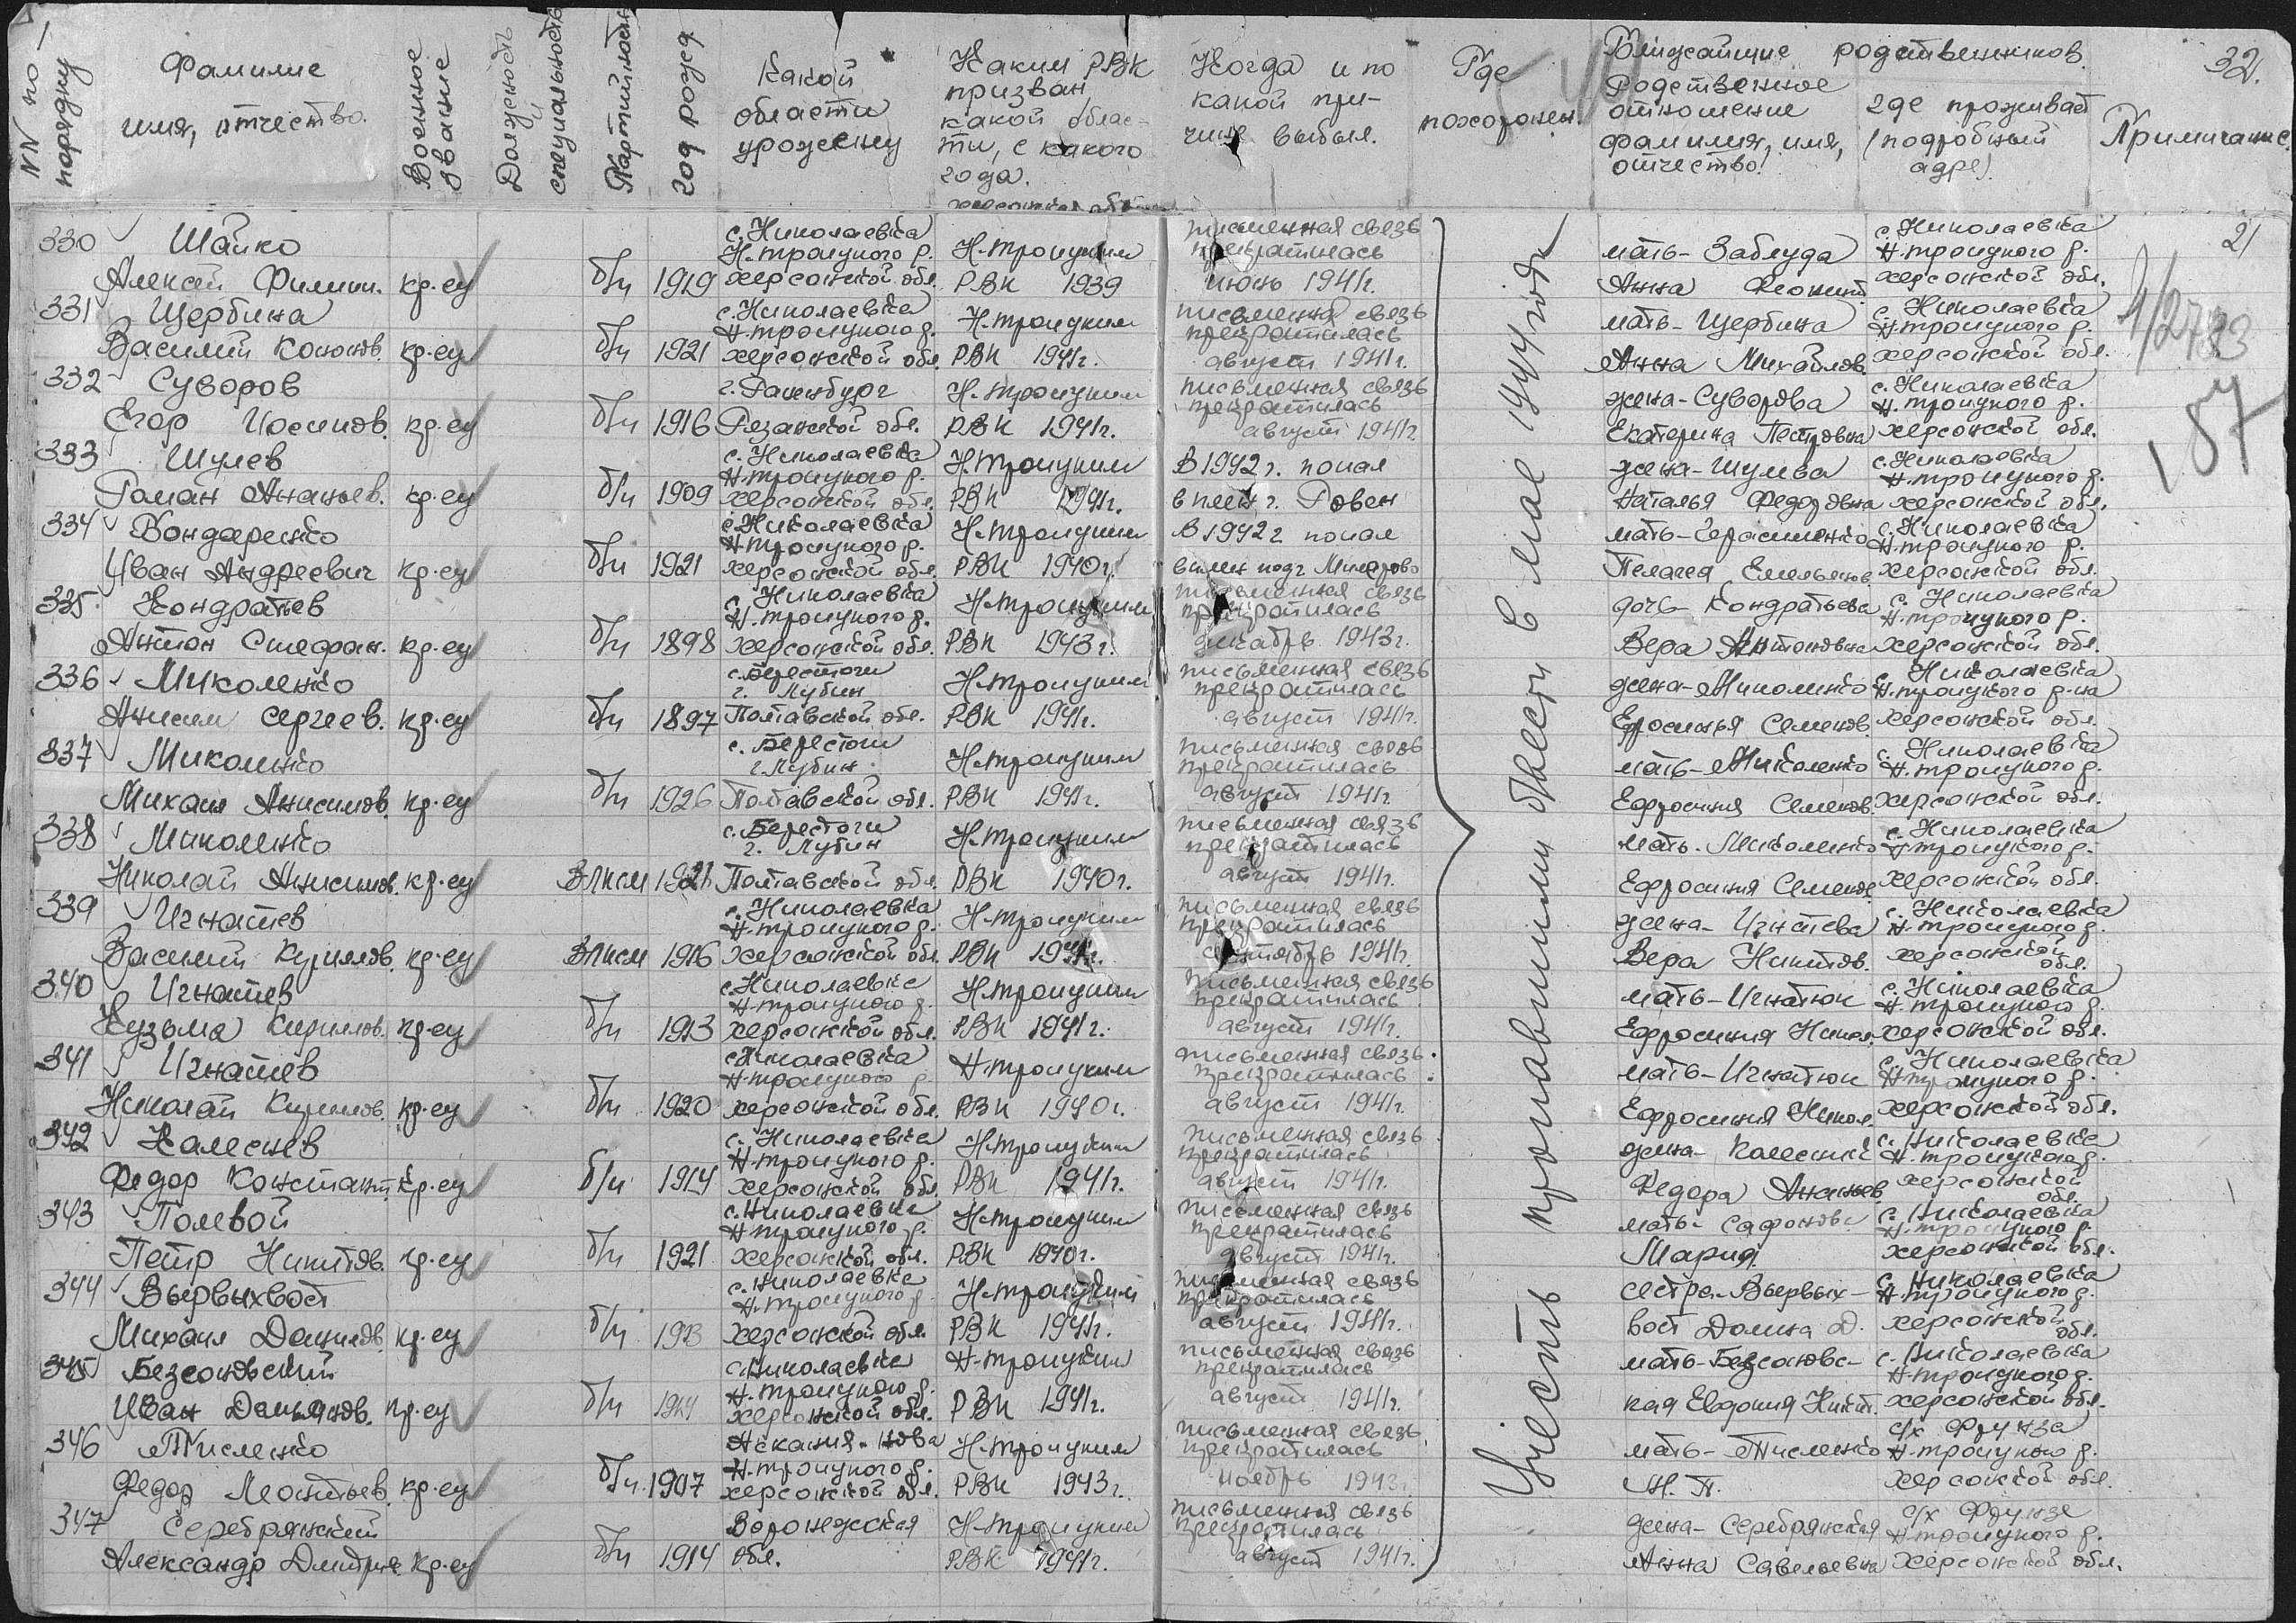 NN по порядку
Фамилие имя, отчество.
Военное звание
Должность и специальность
Партийность
год рожд
Какой области уроженец
Каким РВК призван какой области, с какого года.
Когда и по какой причине выбыл.
Где похоронен.
Ближайшие родственников.
Родственное отношение фамилия, имя, отчество.
где проживает (подробный адре)
Примичание.
32.
21
330 Шайко с. Николаевка Н-троицким письменная связь прекратилась мать- Заблуда с. Николаевка
Алексей Филипп. кр-ец б/п 1919 Н-троицкого р. херсонской обл. РВК 1939 июнь 1941г. Анна Н-троицкого р. херсонской обл.
331 Щербина с. Николаевка Н-троицким письменная связь прекратилась мать- Щербина с. Николаевка
Василий Кононов. кр-ец б/п 1921 Н-троицкого р. херсонской обл. РВК 1941г. август 1941г. Анна Михайлов. Н-троицкого р. херсонской обл.
332 Суворов г. Раненбург Н-троицким письменная связь прекратилась жена- Суворова с. Николаевка
Егор Иосипов. кр-ец б/п 1916 Рязанской обл. РВК 1941г. август 1941г. Екатерина Петровна Н-троицкого р. херсонской обл.
333 Шулев с. Николаевка Н-троицким В 1942г. попал жена- Шулева с. Николаевка
Роман Ананьев. кр-ец б/п 1909 Н-троицкого р. херсонской обл. РВК 1941г. в плен г. Ровен Наталья Федоровна Н-троицкого р. херсонской обл.
334 Бондаренко с. Николаевка Н-троицким В 1942г попал мать- Герасименко с. Николаевка
Иван Андреевич кр-ец б/п 1921 Н-троицкого р. херсонской обл. РВК 1940г. в плен под г Пелагея Емельянов. Н-троицкого р. херсонской обл.
335 Кондратьев с. Николаевка Н-троицким письменная связь прекратилась дочь- Кондратьева с. Николаевка
Антон Стефан. кр-ец б/п 1898 Н-троицкого р. херсонской обл. РВК 1943г. декабрь 1943г. Вера Антоновна Н-троицкого р. херсонской обл.
336 Миколенко с. Берестоги г. Лубин Н-троицким письменная связь прекратилась жена- Миколенко с. Николаевка
Анисим Сергеев. кр-ец б/п 1897 Полтавской обл. РВК 1941г. август 1941г. Ефросинья Семенов. Н-троицкого р-на херсонской обл.
337 Миколенко с. Берестоги г. Лубин Н-троицким письменная связь прекратилась мать- Миколенко с. Николаевка
Михаил Анисимов. кр-ец б/п 1926 Полтавской обл. РВК 1941г. август 1941г. Ефросиния Семенов. Н-троицкого р. херсонской обл.
338 Миколенко с. Берестоги г. Лубин Н-троицким письменная связь прекратилась мать. Миколенко с. Николаевка
Николай Анисимов. кр-ец ВЛКСМ 1921 Полтавской обл. РВК 1940г. август 1941г. Ефросиния Семенов. Н-троицкого р. херсонской обл.
339 Игнатьев с. Николаевка Н-троицким письменная связь прекратилась жена- Игнатева с. Николаевка
Василий Кириллов. кр-ец ВЛКСМ 1916 Н-троицкого р. херсонской обл. РВК 1941г. сентябрь 1941г. Вера Никитов. Н-троицкого р. херсонской обл.
340 Игнатьев с. Николаевке Н-троицким письменная связь прекратилась мать- Игнатюк с. Николаевка
Кузьма Кирилов. кр-ец б/п 1913 Н-троицкого р. херсонской обл. РВК 1941г. август 1941г. Ефросиния Никол. Н-троицкого р. херсонской обл.
341 Игнатьев с. Николаевка Н-троицким письменная связь прекратилась мать- Игнатюк с. Николаевка
Николай Кирилов. кр-ец б/п 1920 Н-троицкого р. херсонской обл. РВК 1940г. август 1941г. Ефросиния Никол. Н-троицкого р. херсонской обл.
342 Калеснев с. Николаевка Н-троицким письменная связь прекратилась жена- с. Николаевка
Федор Констант. кр-ец б/п 1914 Н-троицкого р. херсонской обл. РВК 1941г. август 1941г. Федора Ананьев. Н-троицкого р. херсонской обл.
343 Полевой с. Николаевке Н-троицким письменная связь прекратилась мать- Сафонова с. Николаевка
Петр Никитов. кр-ец б/п 1921 Н-троицкого р. херсонской обл. РВК 1940г. август 1941г. Мария. Н-троицкого р. херсонской обл.
344 Вырвыхвост с. Николаевке Н-троицким письменная связь прекратилась сестра- Вырвых- с. Николаевка
Михаил Данилов. кр-ец б/п 1913 Н-троицкого р. херсонской обл РВК 1941г. август 1941г. вост Домна Д. Н-троицкого р. херсонской обл.
345 Безсоновский с. Николаевке Н-троицким письменная связь прекратилась мать- Безсоновс- с. Николаевка
Иван Демьянов. кр-ец б/п 1914 Н-троицкого р. херсонской обл. РВК 1941г. август 1941г. кая Евдокия Никит. Н-троицкого р. херсонской обл.
346 Тисленко Аскания-Нова Н-троицким письменная связь прекратилась мать- Тисленко с/х Фрунза
Федор Леонтьев. кр-ец б/п. 1907 Н-троицкого р. херсонской обл. РВК 1943г. ноябрь 1943г. М. П. Н-троицкого р. херсонской обл.
347 Серебрянский Воронежская Н-троицким письменная связь прекратилась жена- Серебрянская с/х Фрунзе
Александр Дмитрие. кр-ец б/п 1914 обл. РВК 1941г. август 1941г. Анна Савельевна Н-троицкого р. херсонской обл.
Учесть пропавшими без вести в мае 1944 года
57